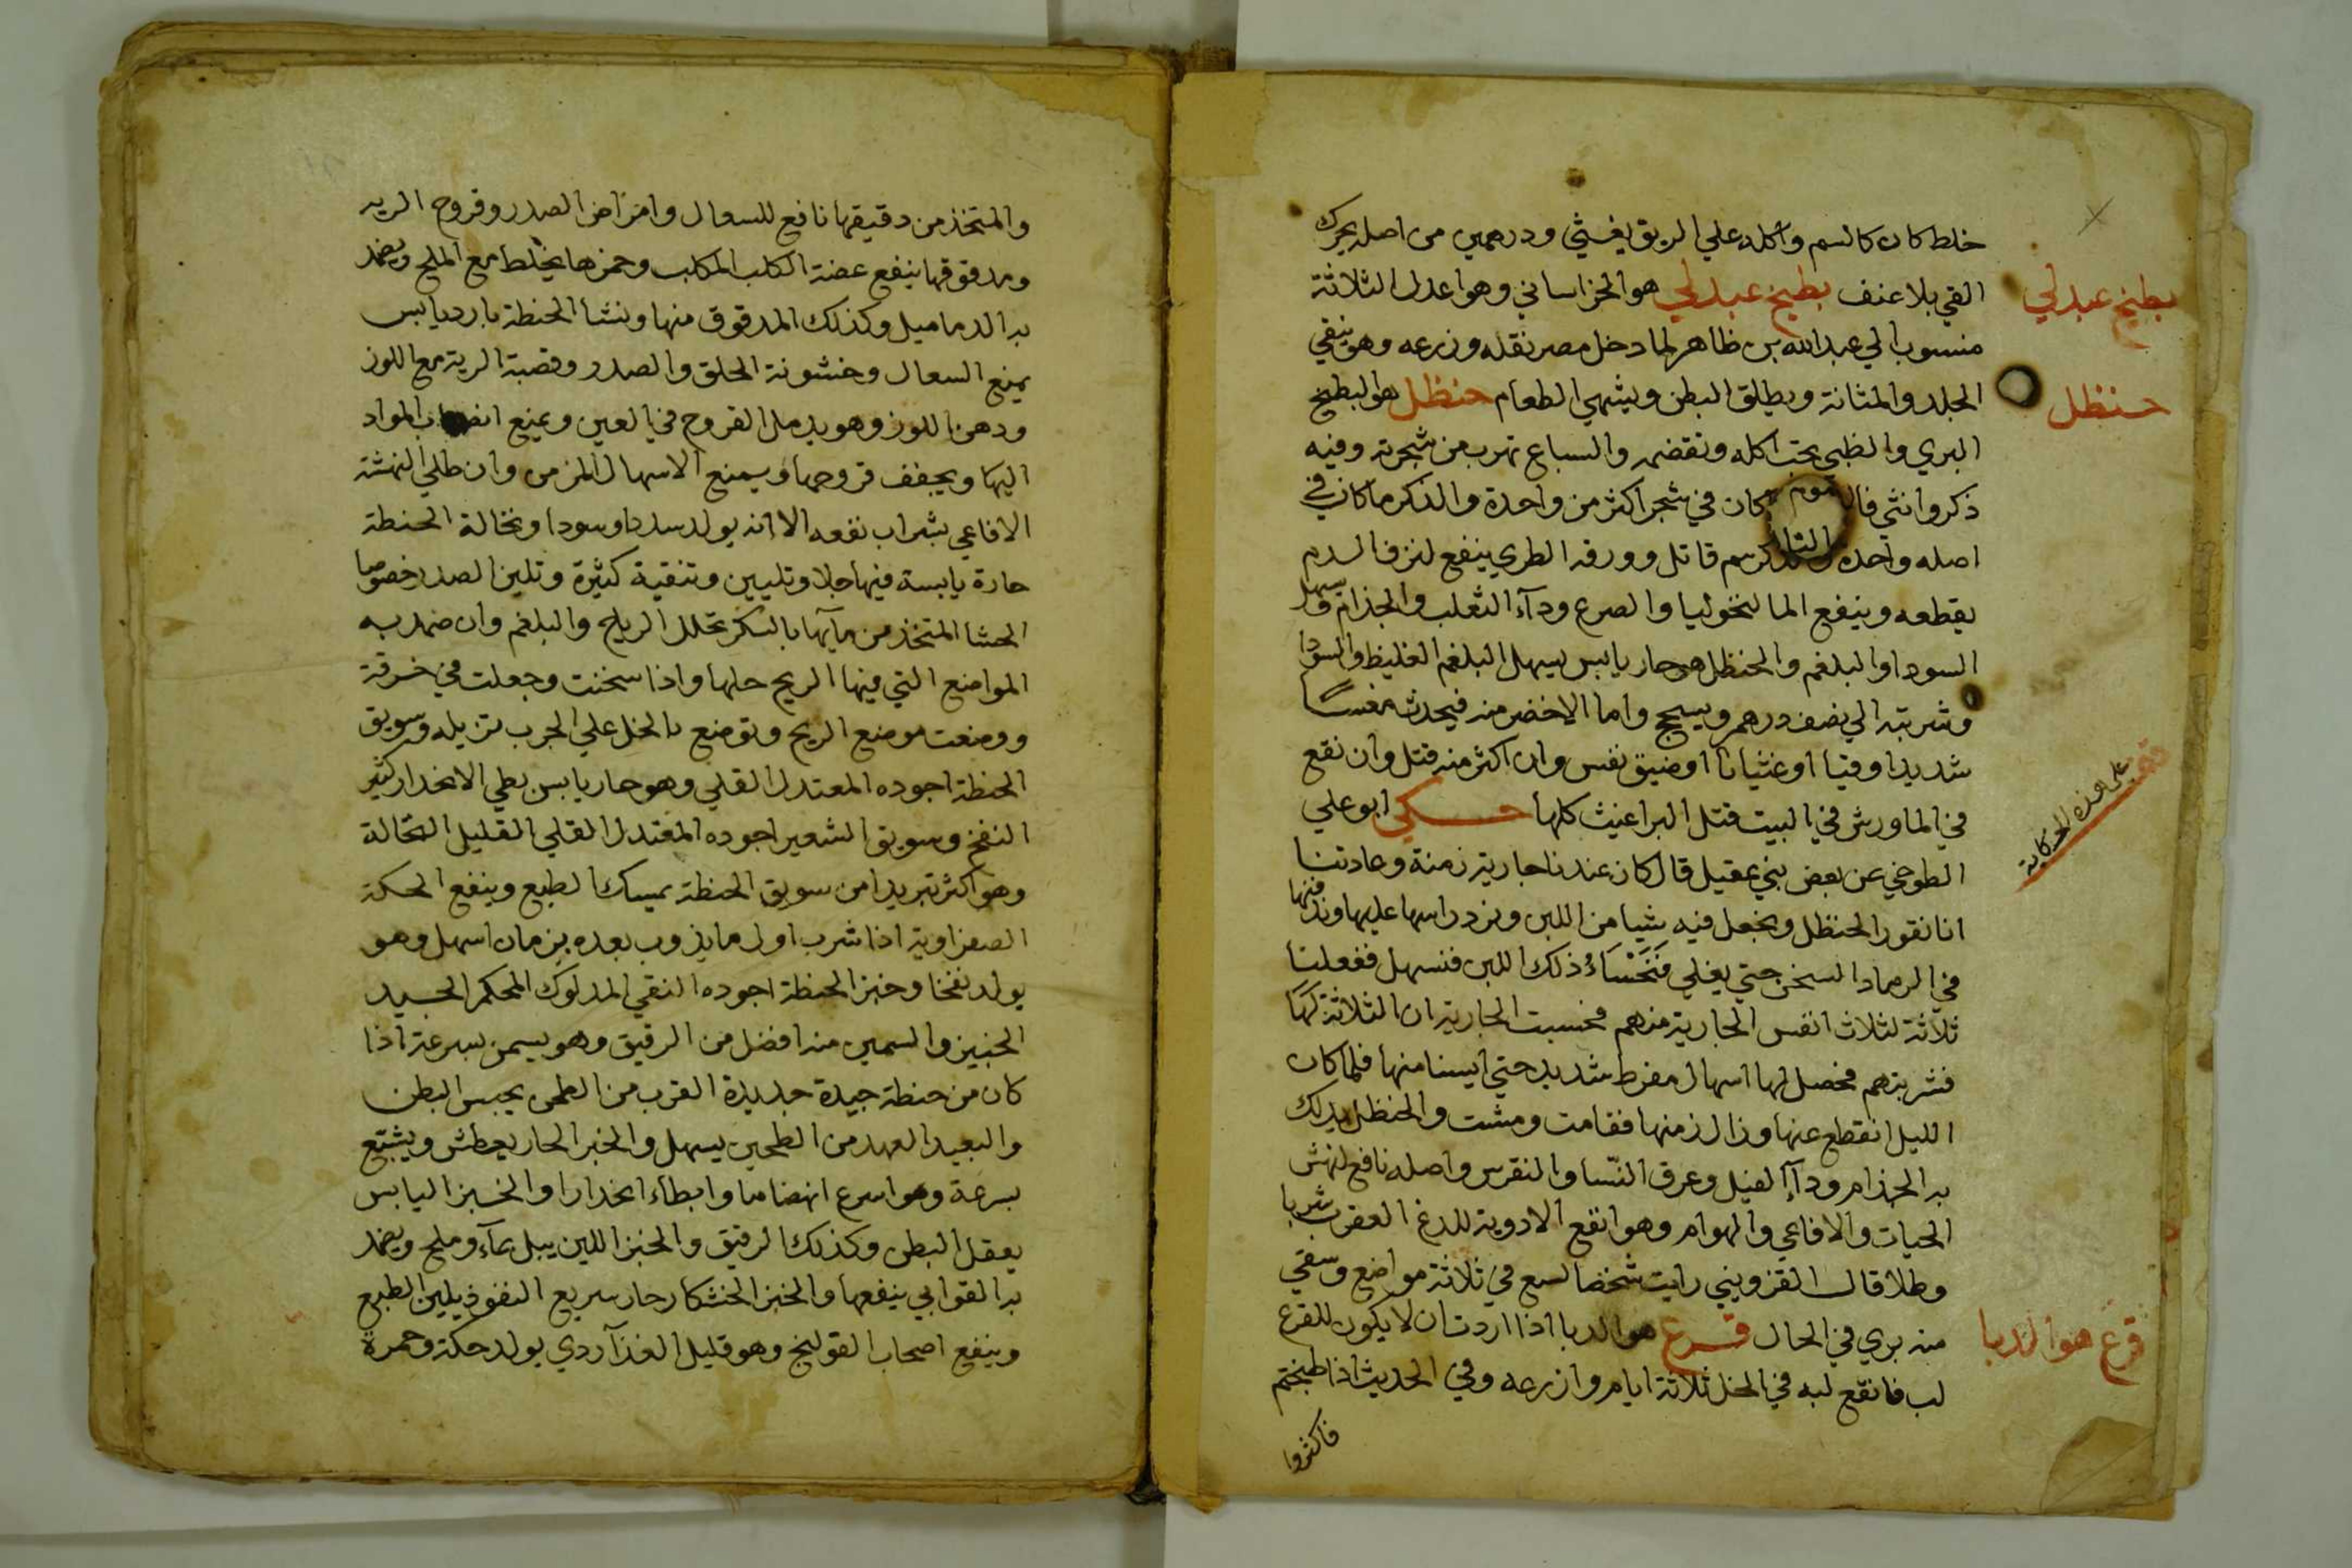 خلط كان كالسم واكله علي الريق يغثي ودرهمين من اصله يحرك
القي بلا عنف بطيخ عبدلي هو الخراساني وهو اعدل الثلاثة
بطيخ عبدلي
منسوب الي عبدالله بن ظاهر لما دخل مصر نقله وزرعه وهو ينقي
الجلد والمثانة ويطلق البطن ويشهي الطعام حنظل هو البطيخ
حنظل
البري والظبي يحب اكله وتقضمه والسباع تهرب من شجرته وفيه
ذكر وانثي فالـ كان في شجر اكثر من واحدة والذكر ما كان في
اصله واحدة سم قاتل وورقه الطري ينفع لنزف الدم
يقطعه وينفع المالنخوليا والصرع ودآء الثعلب والجذام ويسهل
السودا والبلغم والحنظل هو حار يابس يسهل البلغم الغليظ والسودا
وشربته الي نصف درهم ويسحج واما الاخضر منه فيحدث مغسًا
شديدا وقيا او غثيانا او ضيق نفس وان اكثر منه قتل وان نقع
في الما ورش في البيت قتل البراغيث كلها حكي ابو علي
قف علي هذه الحكاية
الطوخي عن بعض بني عقيل قال كان عندنا جارية زمنة وعادتنا
انا نقور الحنظل ونجعل فيه شيا من اللبن ونرد راسها عليها وندفنها
في الرماد السخن حتي يغلي فَنَحْسَاءُ ذلك اللبن فنسهل ففعلنا
ثلاثة لثلاث انفس الجارية منهم فحسبت الجارية ان الثلاثة لها
فشربتهم فحصل لها اسهال مفرط شديد حتي ايسنا منها فلما كان
الليل انقطع عنها وزال زمنها فقامت ومشت والحنظل يدلك
به الجذام ودآء الفيل وعرق النّسا والنقرس واصله نافع لنهش
الحيات والافاعي والهوام وهو انفع الادوية للدغ العقرب شربا
وطلا قال القزويني رايت شخصا لسع في ثلاثة مواضع وسقي
منه بري في الحال قرع هو الدبا اذا اردت ان لا يكون للقرع
قرع هو الدبا
لب فانقع لبه في الخل ثلاثة ايام وازرعه وفي الحديث اذا طبختم
فاكثروا
والمتخذ من دقيقها نافع للسعال وامراض الصدر وقروح الريه
ومدقوقها ينفع عضة الكلب المكلب وخمزها يخلط مع الملح ويضمد
به الدماميل وكذلك المدقوق منها ونشا الحنطة بارد يابس
يمنع السعال وخشونة الحلق والصدر وقصبة الرية مع اللوز
ودهن اللوز وهو يدمل القروح في العين ويمنع المواد
اليها ويجفف قروحها ويمنع الاسهال المزمن وان طلي النهشة
الافاعي بشراب نفعه الا انه يولد سددا وسودا ونخالة الحنطة
حارة يابسة فيها جلا وتليين وتنقية كثيرة وتلين الصدر خصوصا
الحشا المتخذ من مآيها بالسكر تحلل الرياح والبلغم وان ضمد به
المواضع التي فيها الريح حلها واذا سخنت وجعلت في خرقة
ووضعت موضع الريح وتوضع بالخل علي الجرب تزيله وسويق
الحنطة اجوده المعتدل القلي وهو حار يابس بطي الانحدار كثير
النفخ وسويق الشعير اجوده المعتدل القلي القليل النخالة
وهو اكثر تبريدا من سويق الحنطة يمسك الطبع وينفع الحكة
الصفراوية اذا شرب اول ما يذوب بعده بزمان اسهل وهو
يولد نفخا وخبز الحنطة اجوده النقي المدلوك المحكم الجيد
الخبيز والسمين منه افضل من الرقيق وهو يسمن بسرعة اذا
كان من حنطة جيدة جديدة القرب من الطحن يحبس البطن
والبعيد العهد من الطحين يسهل والخبز الحار يعطش ويشبع
بسرعة وهو اسرع انهضاما وابطاء انحدارا والخبز اليابس
يعقل البطن وكذلك الرقيق والخبز اللين يبل بمآء وملح ويضمد
به القوابي ينفعها والخبز الخشكار حار سريع النفوذ يلين الطبع
وينفع اصحاب القولنج وهو قليل الغذآ ردي يولد حكة وحمرة